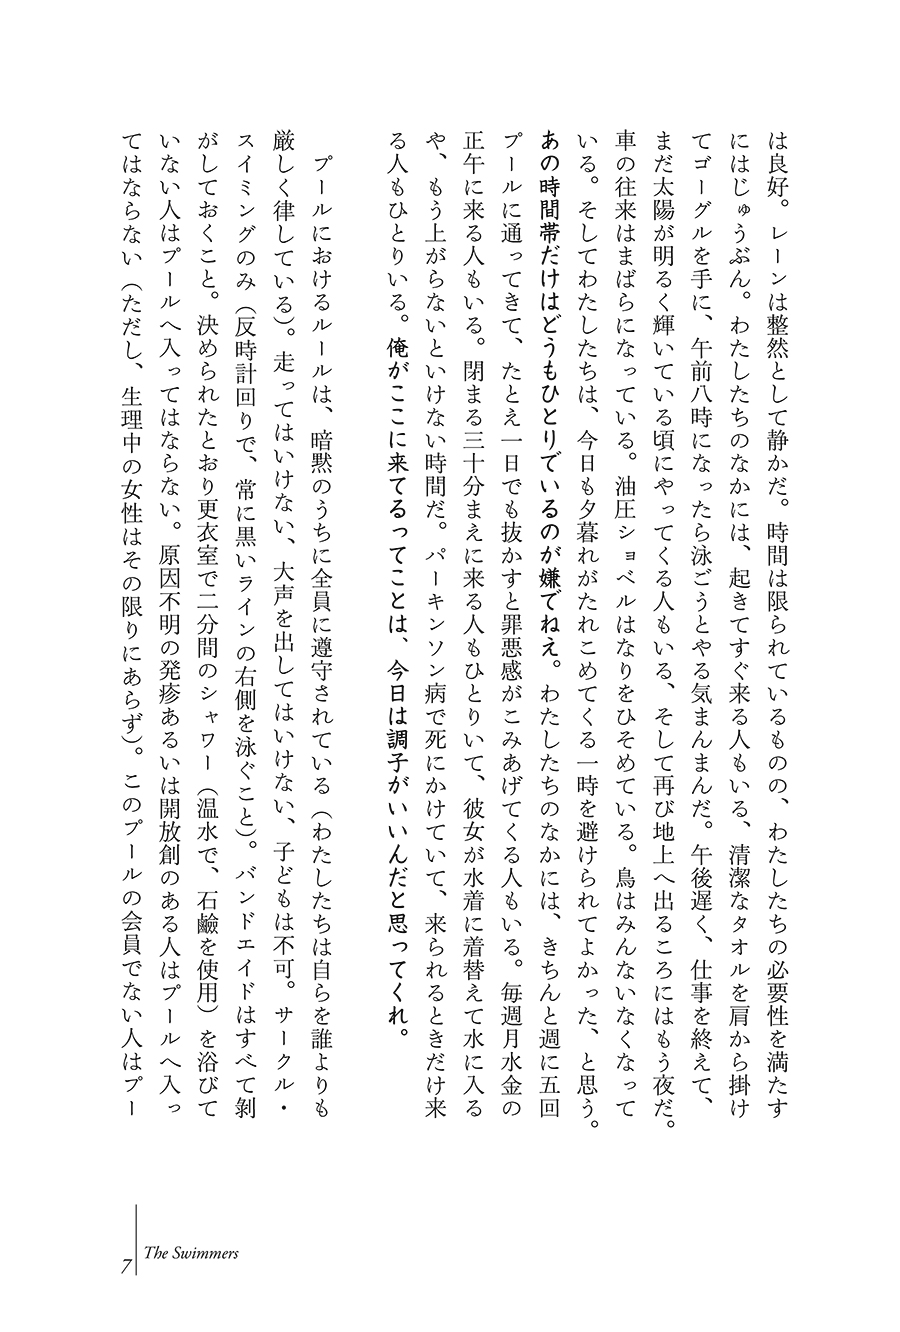 は良好。レーンは整然として静かだ。時間は限られているものの、わたしたちの必要性を満たす
にはじゅうぶん。わたしたちのなかには、起きてすぐ来る人もいる、清潔なタオルを肩から掛け
てゴーグルを手に、午前八時になったら泳ごうとやる気まんまんだ。午後遅く、仕事を終えて、
まだ太陽が明るく輝いている頃にやってくる人もいる、そして再び地上へ出るころにはもう夜だ。
車の往来はまばらになっている。油圧ショベルはなりをひそめている。鳥はみんないなくなって
いる。そしてわたしたちは、今日も夕暮れがたれこめてくる一時を避けられてよかった、と思う。
あの時間帯だけはどうもひとりでいるのが嫌でねえ。わたしたちのなかには、きちんと週に五回
プールに通ってきて、たとえ一日でも抜かすと罪悪感がこみあげてくる人もいる。毎週月水金の
正午に来る人もいる。閉まる三十分まえに来る人もひとりいて、彼女が水着に着替えて水に入る
や、もう上がらないといけない時間だ。パーキンソン病で死にかけていて、来られるときだけ来
る人もひとりいる。俺がここに来てるってことは、今日は調子がいいんだと思ってくれ。
プールにおけるルールは、暗黙のうちに全員に遵守されている（わたしたちは自らを誰よりも
厳しく律している）。走ってはいけない、大声を出してはいけない、子どもは不可。サークル・
スイミングのみ（反時計回りで、常に黒いラインの右側を泳ぐこと）。バンドエイドはすべて剝
がしておくこと。決められたとおり更衣室で二分間のシャワー（温水で、石鹼を使用）を浴びて
いない人はプールへ入ってはならない。原因不明の発疹あるいは開放創のある人はプールへ入っ
てはならない（ただし、生理中の女性はその限りにあらず）。このプールの会員でない人はプー
The Swimmers
7